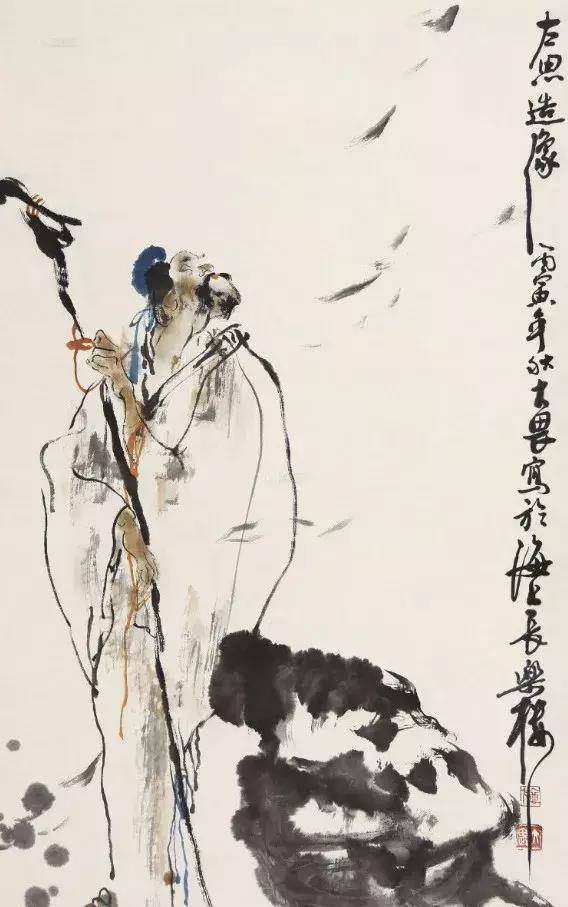 左思造像 丙寅年秋大畏寫於海上長樂樓